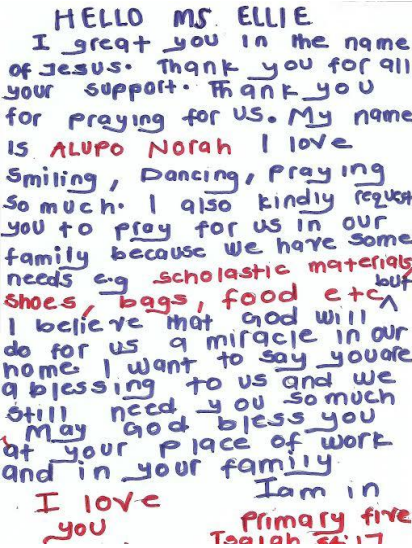 HELLO MS. ELLIE
I great you in the name
of Jesus. Thank you for all
your support. Thank you
for praying for us. My name
is ALUPO Norah I love
smiling, Dancing, praying
so much. I also kindly request
you to pray for us in our
family because we have some
needs e.g scholastic materials
shoes, bags, food etc, but
I believe that God will
do for us a miracle in our
home. I want to say you are
a blessing to us and we
still need you so much
May God bless you
at your place of work
and in your family
I love Iam in
you Primary five
Isaiah 54:17